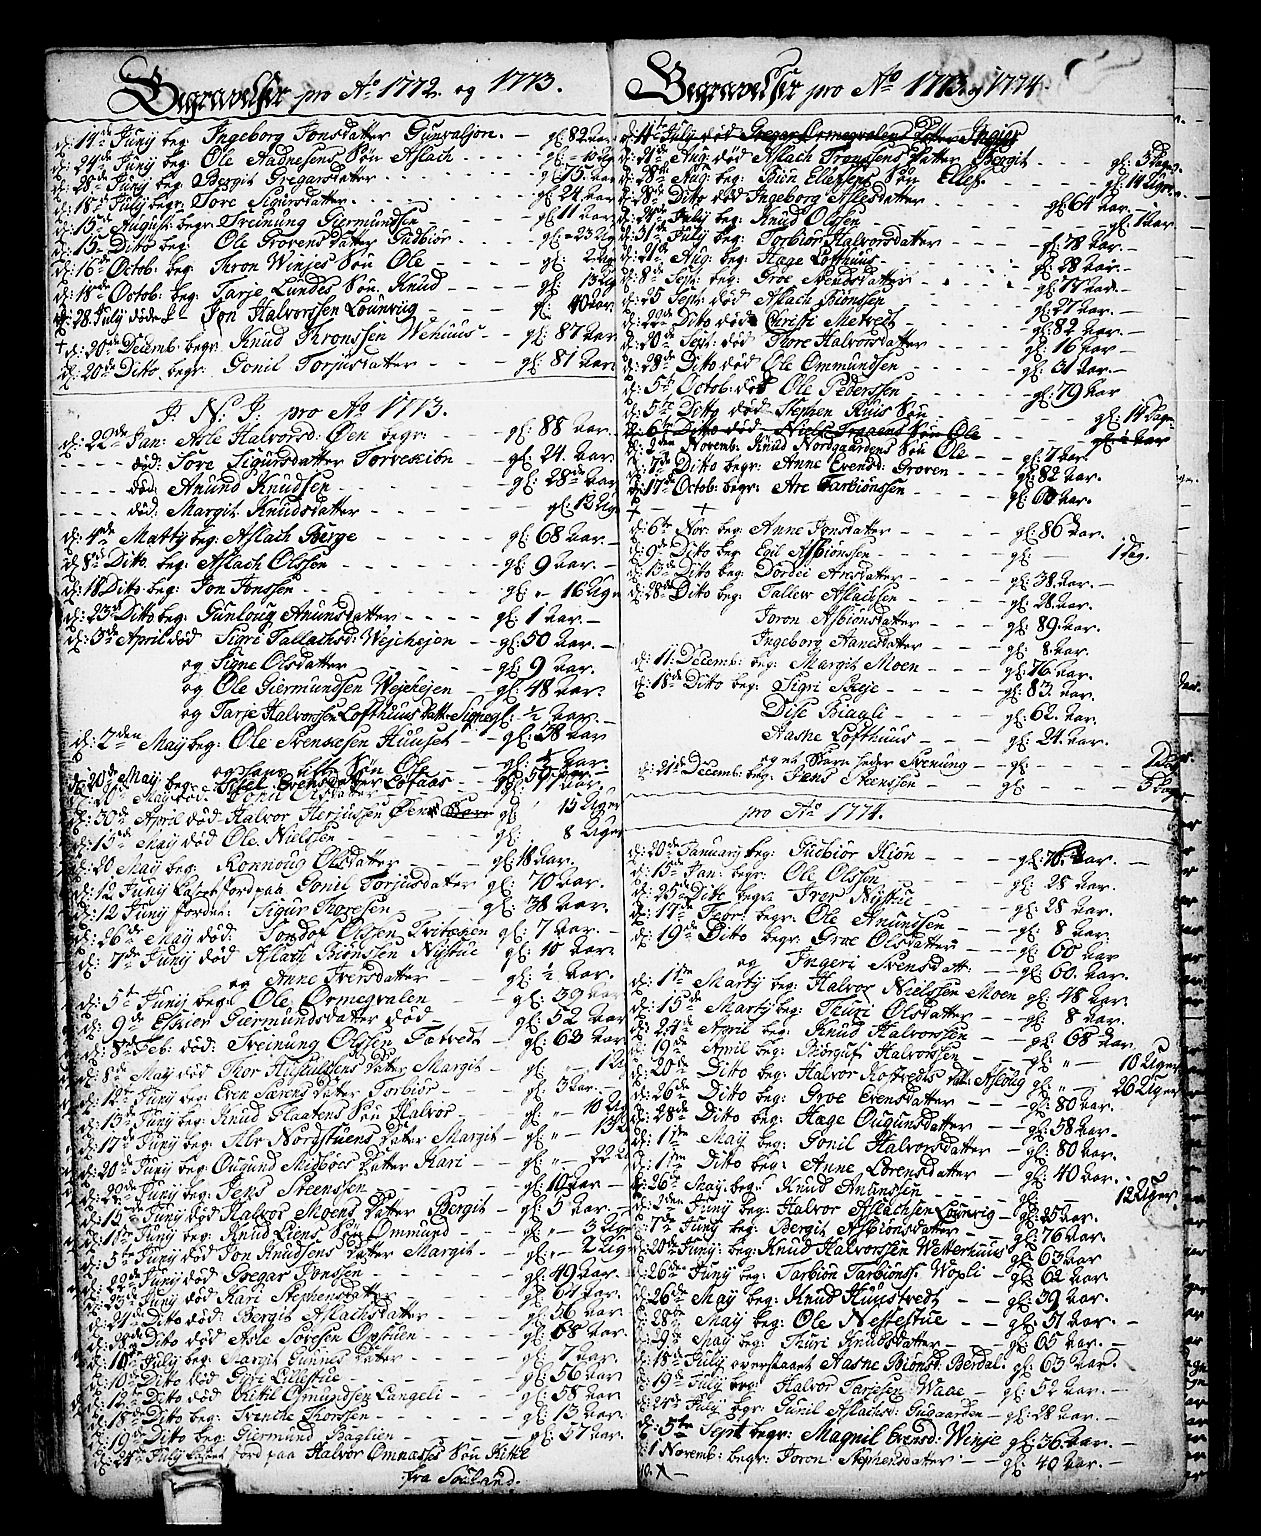 Begravelser pro Ao 1772. og 1773.
d: 14de Junÿ beg: Ingeborg Jonsdatter Gunvaljon. gl: 82 aar
d: 24de Junÿ beg: Ole Aadnesens Søn Aslach
d: 28de Junÿ beg: Bergit Gregarsdatter gl: 75 aar
d: 18de Julÿ begr: Tore Sigursdatter gl: 24 aar
d: 15de August: begr: Sveinung Giermundsen gl: 11 aar
d: 15de Ditto beg: Ole Grovens datter Gudbiør gl: 23 Ug
d: 16de Octob: beg: Thron Winjes Søn Ole gl: aar
d: 18de Octob: beg: Tarje Lundes Søn Knud gl: 13 Ug
d: 28 Julÿ døde Jon Halvorssen Lounvig gl: 40 aar
d: 20de Decemb: begr: Knud Thronssen Wehuus gl: 87 aar
d: 20de Ditto begr: Gonil Torjusdatter gl: 81 aar
J. N. J. pro Ao 1773.
d: 22de Jan: Asle Halvorsd: Øen begr: gl: 88 aar.
død: Tore Sigursdatter Torveskibn gl: 24 aar.
død: Anund Knudsen gl: 28 aar
død: Margit Knudsdatter gl: 13 Uger
d: 4de Martÿ beg: Aslach Berge gl: 68 aar
d: 8de Ditto beg: Aslach Olssen gl: 9 aar
d: 18 Ditto beg: Jon Jonssen gl: 16 Uger
d: 23de Ditto beg: Gunloug Anunsdatter gl: 1 aar
d: 3de April død Sigri Tallachsd: Wejehejen gl: 50 aar
og Signe Olsdatter gl: 9 aar
og Ole Giermundsen Wejehejen gl: 48 aar
og Tarje Halvorssen Lofthuus datt: Signe gl: ½ aar
d: 2den Maÿ beg: Ole Svenkesen Huuset gl: 38 aar
Søn Ole gl: ½ aar
d: 20de Maÿ beg: Sissel Evensdatter Lofaas gl: 59 aar
Maÿ død: Gonil Olsdatter
d: 30de April død: Halvor Herjussen Øens 15 Uger
d: 15de Maÿ død Ole Nielssen gl: 8 Uger
d: 20 Maÿ beg: Ronnoug Olsdatter gl: 18 aar
d: 12 Junÿ Casted Jord paa Gonil Torjusdatter gl: 70 aar
d: 12 Junÿ Jordet: Sigur Thoresen gl: 38 aar
d: 26de Maÿ død: Tondof Olssen Fritøgen gl: 7 aar
d: 7de Junÿ død Aslach Biønssen Nÿstue gl: 10 aar
og Anne Iversdatter gl: ½ aar
d: 5te Junÿ beg: Ole Ormegvalen gl: 39 aar
d: 9de Eskier Giermundsdatter død gl: 52 aar
d: 8de Feb: død: Sveinung Olssen Tætvedt gl: 63 aar
d: 8de Maÿ død Thor Huskulssens datter Margit gl: 12
d: 12te Junÿ beg: Even Sørens datter Torbiør gl: 3 aar
d: 13de Junÿ beg: Knud Flaatens Søn Halvor gl: 10 Ug
d: 17de Junÿ beg: Alv Nordstuens datter Margit gl: 13
d: 20de Junÿ beg: Ougund Midbøes datter Kari gl: 22
d: 22de Junÿ beg: Jens Steenssen gl: 10 aar
d: 15de Junÿ død Halvor Moens datter Bergit gl: 5 aar
d: 11te Junÿ beg: Knud Liens Søn Ommund gl: 3 Ug
d: 5te Junÿ død Jon Knudsens datter Margit gl: 2 Uger
d: 22de Junÿ død Gregar Jonssen gl: 49 aar
d: 23de Junÿ død Kari Stephensdatter gl: 67 aar
d: 24de Ditto død: Bergit Aslachsdatter gl: 56 aar
d: 28de Ditto død Asle Toresen Opstuen gl: 68 aar
d: 10de Julÿ beg: Margit Gunnes datter gl: 7 aar
d: 10de Ditto død Giri Lillestue gl: 56 aar
d: 12te Ditto død Kitil Ormundsen Langeli gl: 58 aar
d: 18de Ditto beg: Svenche Thorssen gl: 13 aar
d: 19de Ditto beg: Giermund Baglien gl: 57 aar
d: 24de Julÿ Castet Jord paa Halvor Omnæsses Søn Kittil
fra Souland.
Begravelser pro Ao 1773 og 1774.
d: 11te Julÿ død Gregar Ormegvalens datter Ingier
d: 21de Aug: død Aslach Tronssens datter Bergit gl: 3 Dage
d: 28de Aug: beg: Biøn Ellefsens Søn Ellef. gl: 14 Uger
d: 28de Ditto død Ingeborg Aslesdatter gl: 64 aar
d: 24de Julÿ beg: Knud Olssen gl: 1 aar
d: 31te Julÿ beg: Torbiør Halvorsdatter gl: 78 aar
d: 21de Aug: beg: Hage Lofthuus gl: 28 aar
d: 8de Sept: beg: Groe Svendsdatter gl: 17 aar
d: 25 Sept: død Aslach Biønssen gl: 27 aar
d: 22de Ditto død Christi Metvedt gl: 82 aar
d: 20de Sept: død Thore Halvorsdatter gl: 16 aar
d: 28de Ditto død Ole Ommundsen gl: 31 aar
d: 5te Octob: død Ole Pederssen gl: 79 aar
d: 5te Ditto død Stephen Huus Søn gl: 14 Dage
d: 6te Ditto død Niels Søn Ole gl: aar
d: 2den Novemb: Knud Nordgaardens Søn Ole gl: 7 aar
d: 7de Ditto begr: Anne Evensd: Groven gl: 82 aar
d: 17de Octob: begr: Are Tarbiønssen gl: 60 aar
d: 6te Nov: beg: Anne Jonsdatter gl: 86 aar
d: 9de Ditto beg: Egil Asbiønssen gl: 1 Dag.
d: 13de Ditto beg: Dordei Aresdatter gl: 38 aar
d: 28de Ditto beg: Tallew Aslachsen gl: 28 aar
Joron Asbiønsdatter gl: 89 aar
Ingeborg Hansdatter gl: 8 aar
d: 11: Decemb: beg: Margit Moen gl: 76 aar
d: 18de Ditto beg: Sigri Skeje gl: 83 aar
Dise Biaali gl: 62 aar
Aasne Lofthuus gl: 24 aar
og et Barn fader Svenung gl:
d: 21de Decemb: beg: Jens Steenssen gl: 5 Dage
pro Ao 1774.
d: 20de Januarÿ beg: Gudbiør Hiøn gl: 76 aar
d: 15de Jan: begr: Ole Olssen gl: 28 aar
d: 25de Ditto begr: Iver Nÿstue gl: 28 aar
d: 17de Febr: begr: Ole Anundsen gl: 8 aar
d: 19de Ditto begr: Groe Olsdatter gl: 60 aar
og Ingeri Svensdatt: gl: 60 aar
d: 1ste Martÿ beg: Halvor Nielssen Moen gl: 48 aar
d: 15de Martÿ beg: Thuri Olsdatter gl: 8 aar
d: 24de April beg: Knud Halvorssen gl: 68 aar
d: 19de April beg: Biørguf Halvorssen gl: 10 Uger
d: 20de Ditto beg: Halvor Rostvedts datt: Asloug gl: 26 Uger
d: 26de Ditto beg: Groe Evensdatter gl: 80 aar
d: 28de Ditto beg: Hæge Ougunsdatter gl: 58 aar
d: 1ste Maÿ beg: Gonil Halvorsdatter gl: 80 aar
d: 1ste Ditto beg: Anne Lørensdatter gl: 40 aar
d: 26te Maÿ beg: Knud Anunssen gl: 12 Uger
d: 2den Junÿ beg: Halvor Aslachsen Lounvig gl: 25 aar
d: 7de Junÿ beg: Bergit Asbiønsdatter gl: 76 aar
d: 20de Junÿ beg: Knud Halvorssen Wetterhuus gl: 63 aar
d: 26de Junÿ beg: Tarbiøn Tarbiønss: Wopli gl: 62 aar
d: 26de Maÿ beg: Knud Huustvedt gl: 39 aar
d: 28de Maÿ beg: Ole Nestestue gl: 51 aar
d: 29de Maÿ beg: Thuri Knudsdatter gl: 65 aar
d: 18de Julÿ overstaaet Aasne Biønsd: Berdal gl: 63 aar
d: 19de Julÿ beg: Halvor Tarjesen Waae gl: 52 aar
d: 24de Julÿ bgr: Gunil Aslachsd: Gugaarden gl: 28 aar
d: 5te Sept begr: Magnil Evensd: Winje gl: 36 aar
d: 1 Novemb: begr: Joron Stephensdatter gl: 40 aar